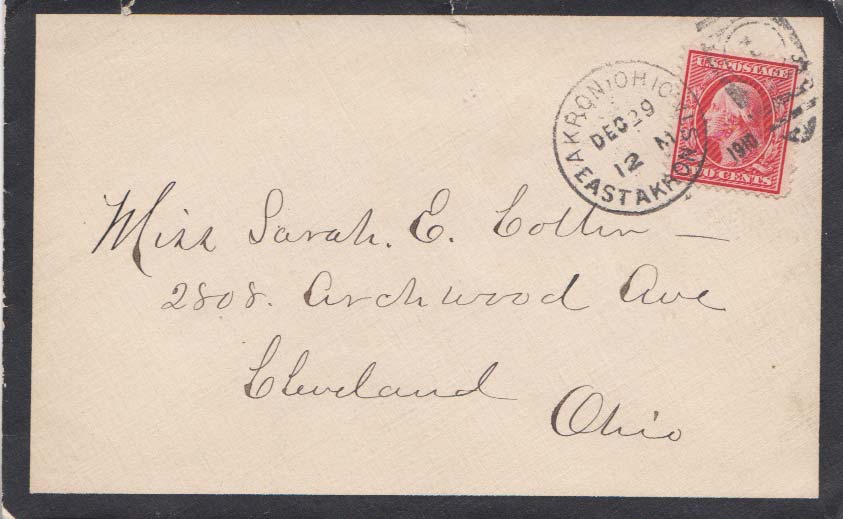 U.S. POSTAGE
AKRON, OHIO
DEC 29
12 M
1910
EAST AKRON STA.
CENTS
Miss Sarah. E. Collin —
2808. Archwood Ave
Cleveland
Ohio